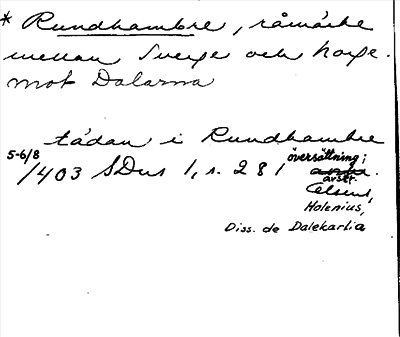 * Rundhambre, råmärke
mellan Sverge och Norge.
mot Dalarna
tádan i Rundhambre
5-6/8
1403 SDns 1, s. 281 översättning i
avskr.
Celsius,
Holenius,
Diss. de Dalekarlia